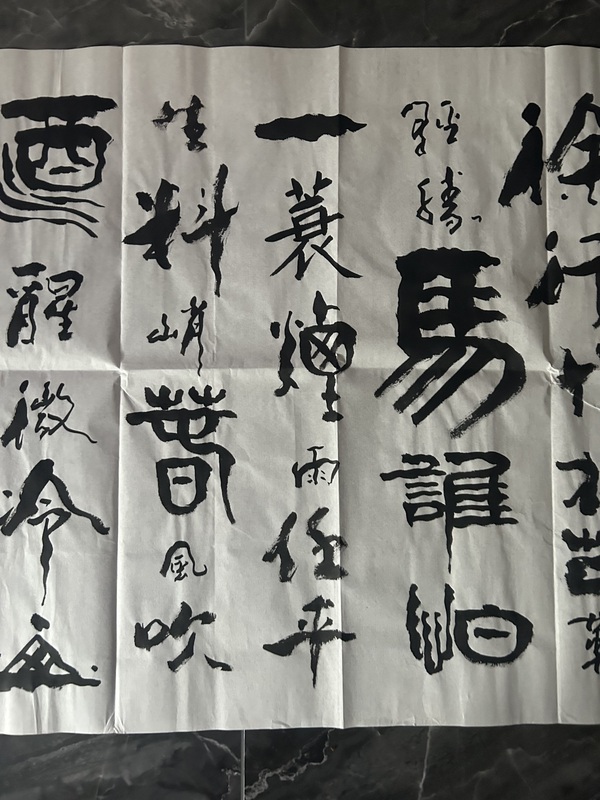 徐行竹杖芒鞋
輕勝馬誰怕
一蓑煙雨任平
生料峭春風吹
酒醒微冷山